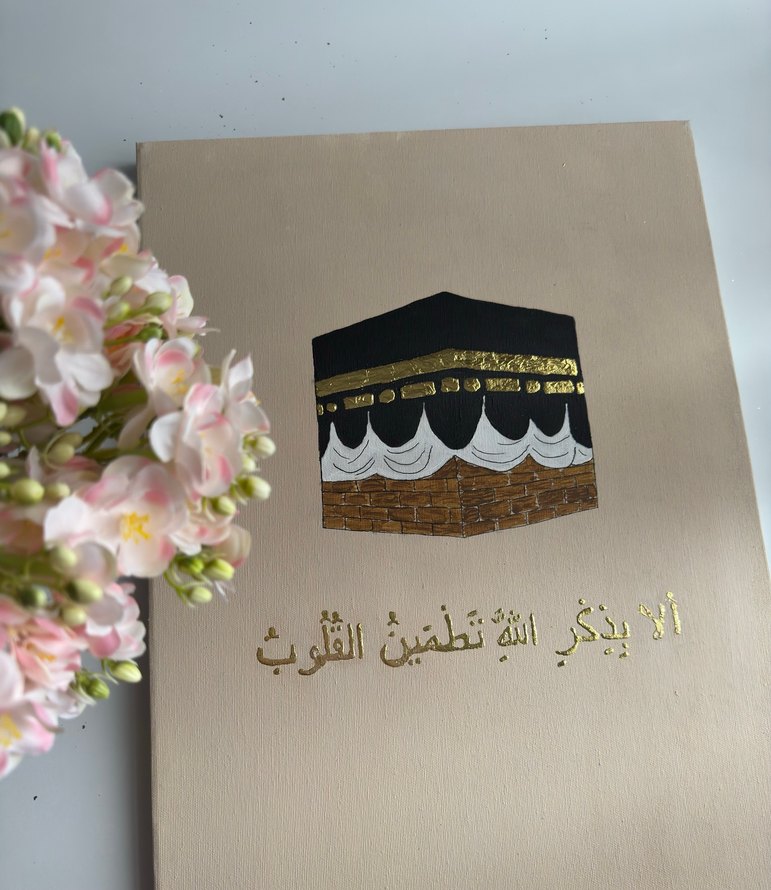 ألا بِذِكْرِ اللَّهِ تَطْمَئِنُ القُلُوبُ